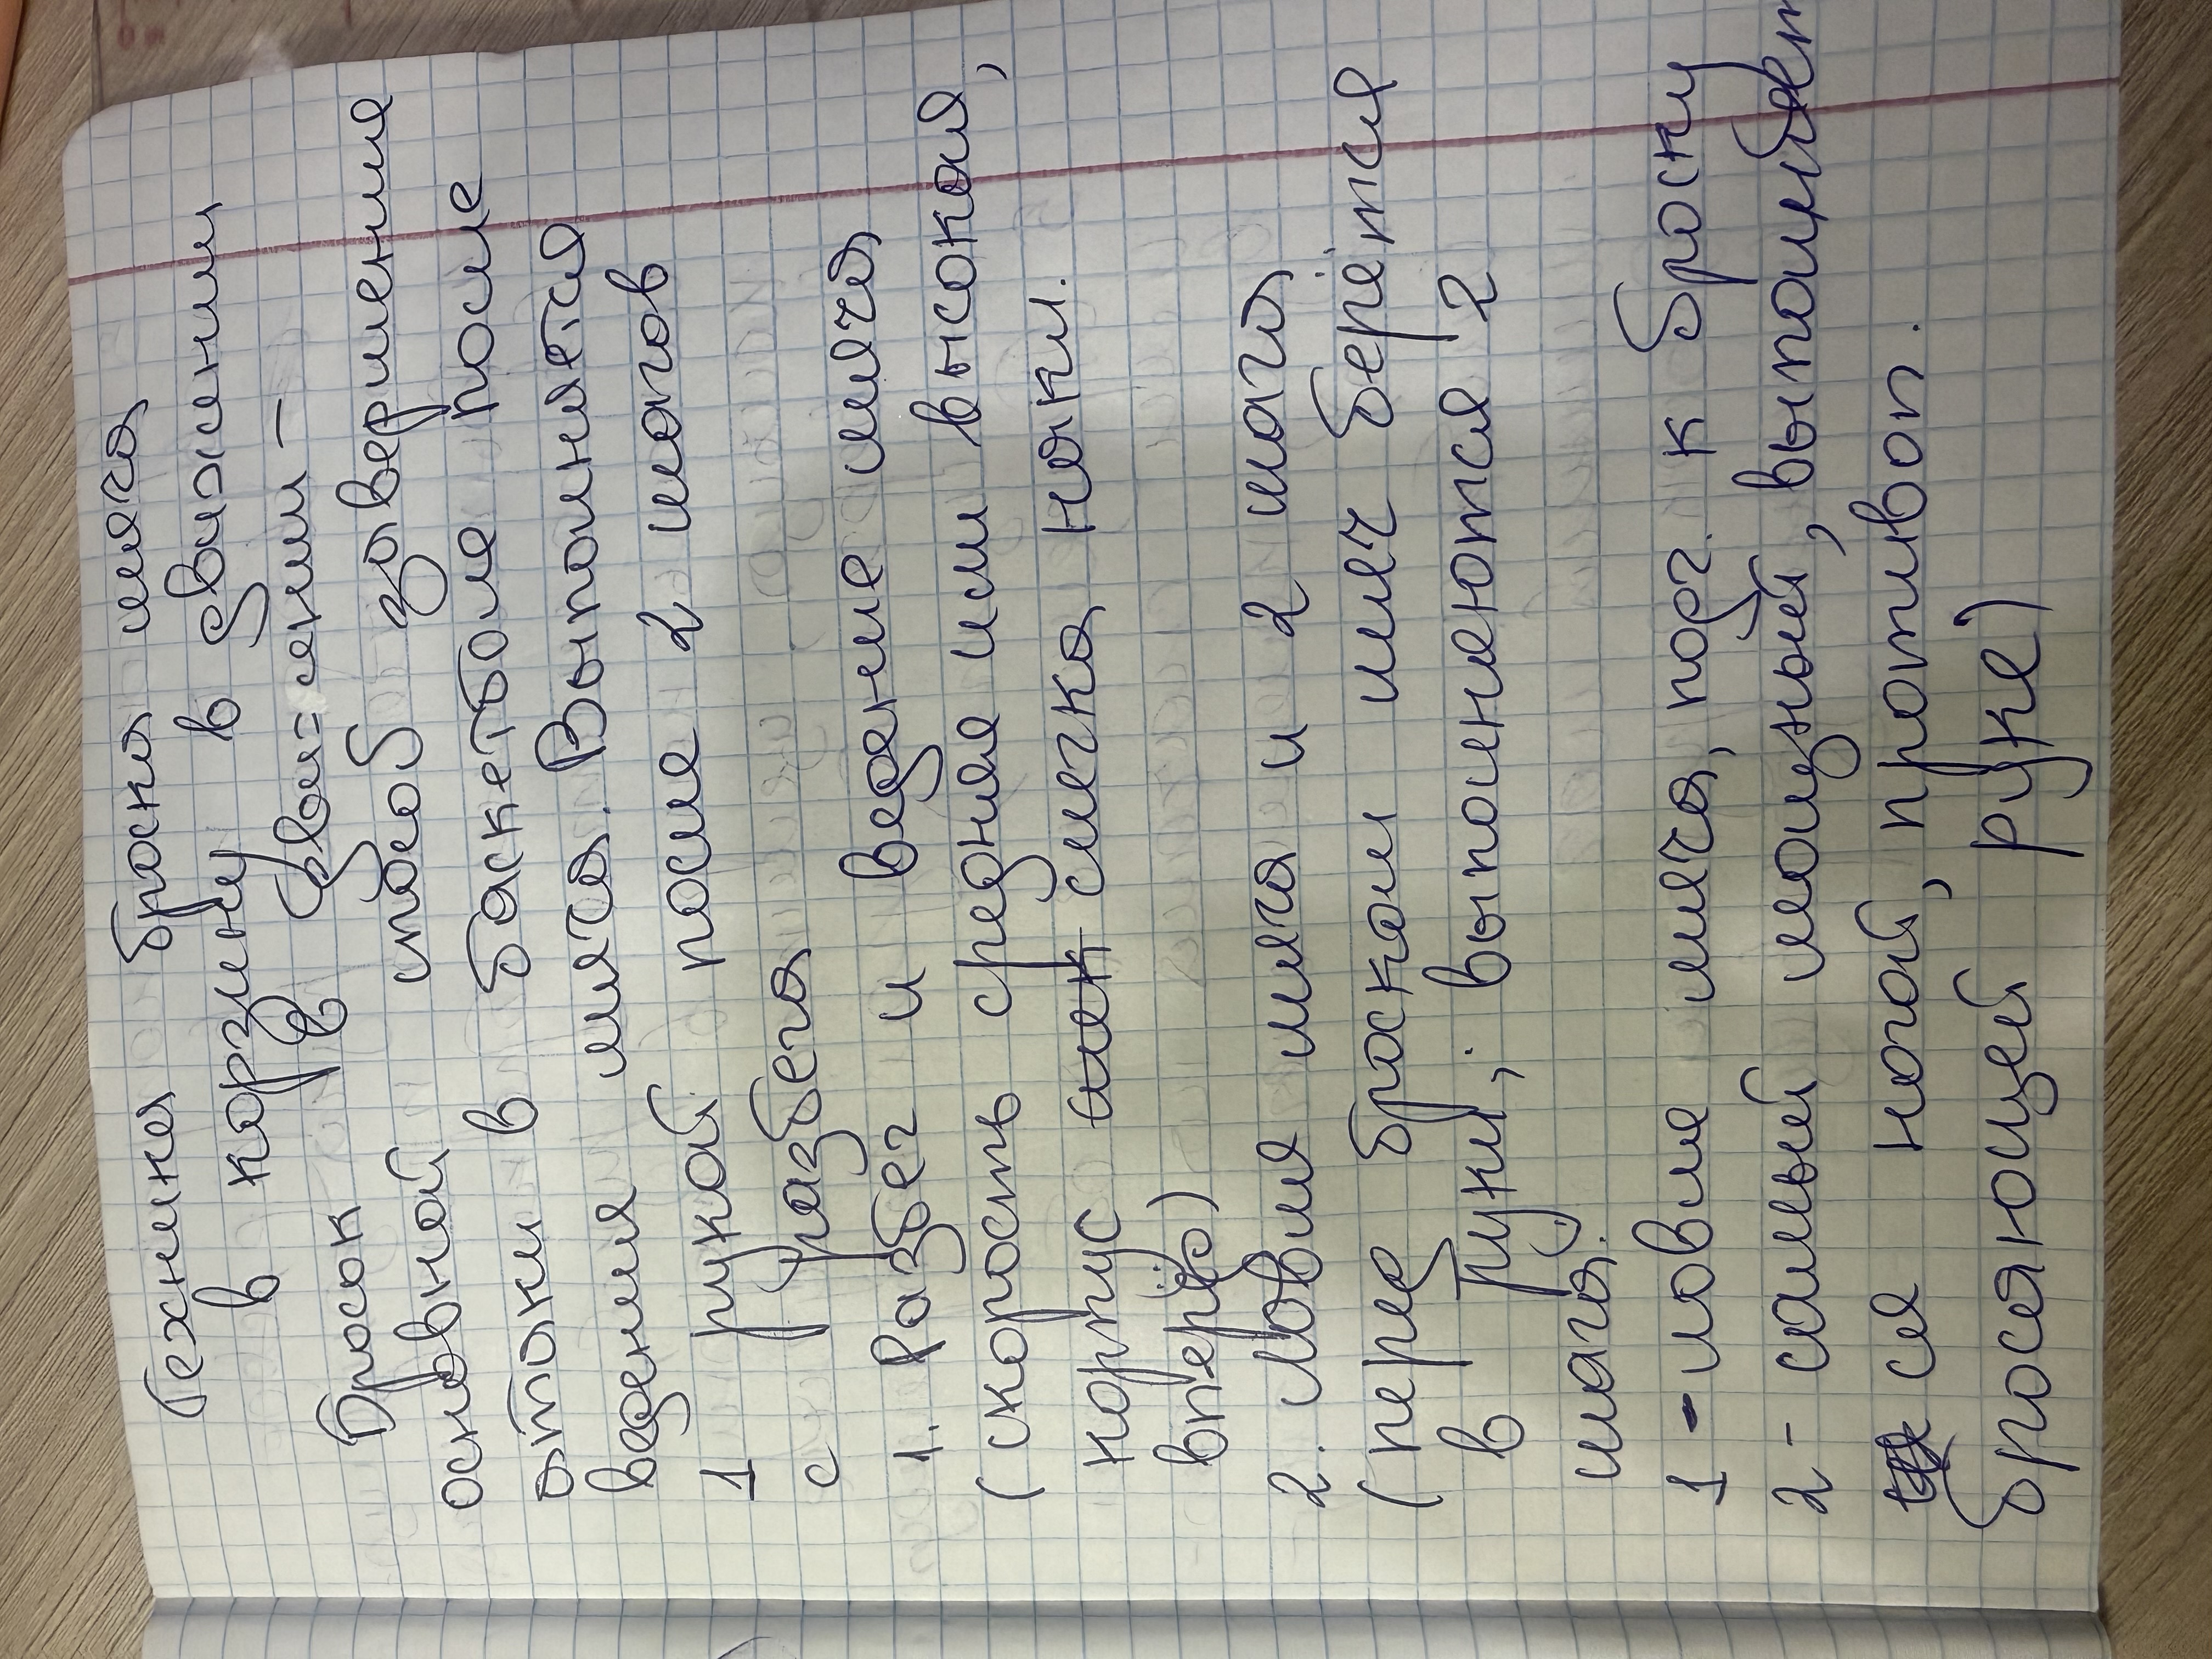 Техника броска мяча
в корзину в движении
Бросок в движении -
основной способ завершения
атаки в баскетболе после
ведения мяча. Выполняется
1 рукой после 2 шагов
с разбега
1. Разбег и ведение мяча
(скорость средняя или высокая,
корпус слегка наки.
вперёд)
2. Ловля мяча и 2 шага
(перед броском мяч берётся
в руки; выполняются 2
шага:
1 - ловля мяча, подг. к броску
2 - самый мощный, выполняет
ся ногой, противоп.
бросающей руке)